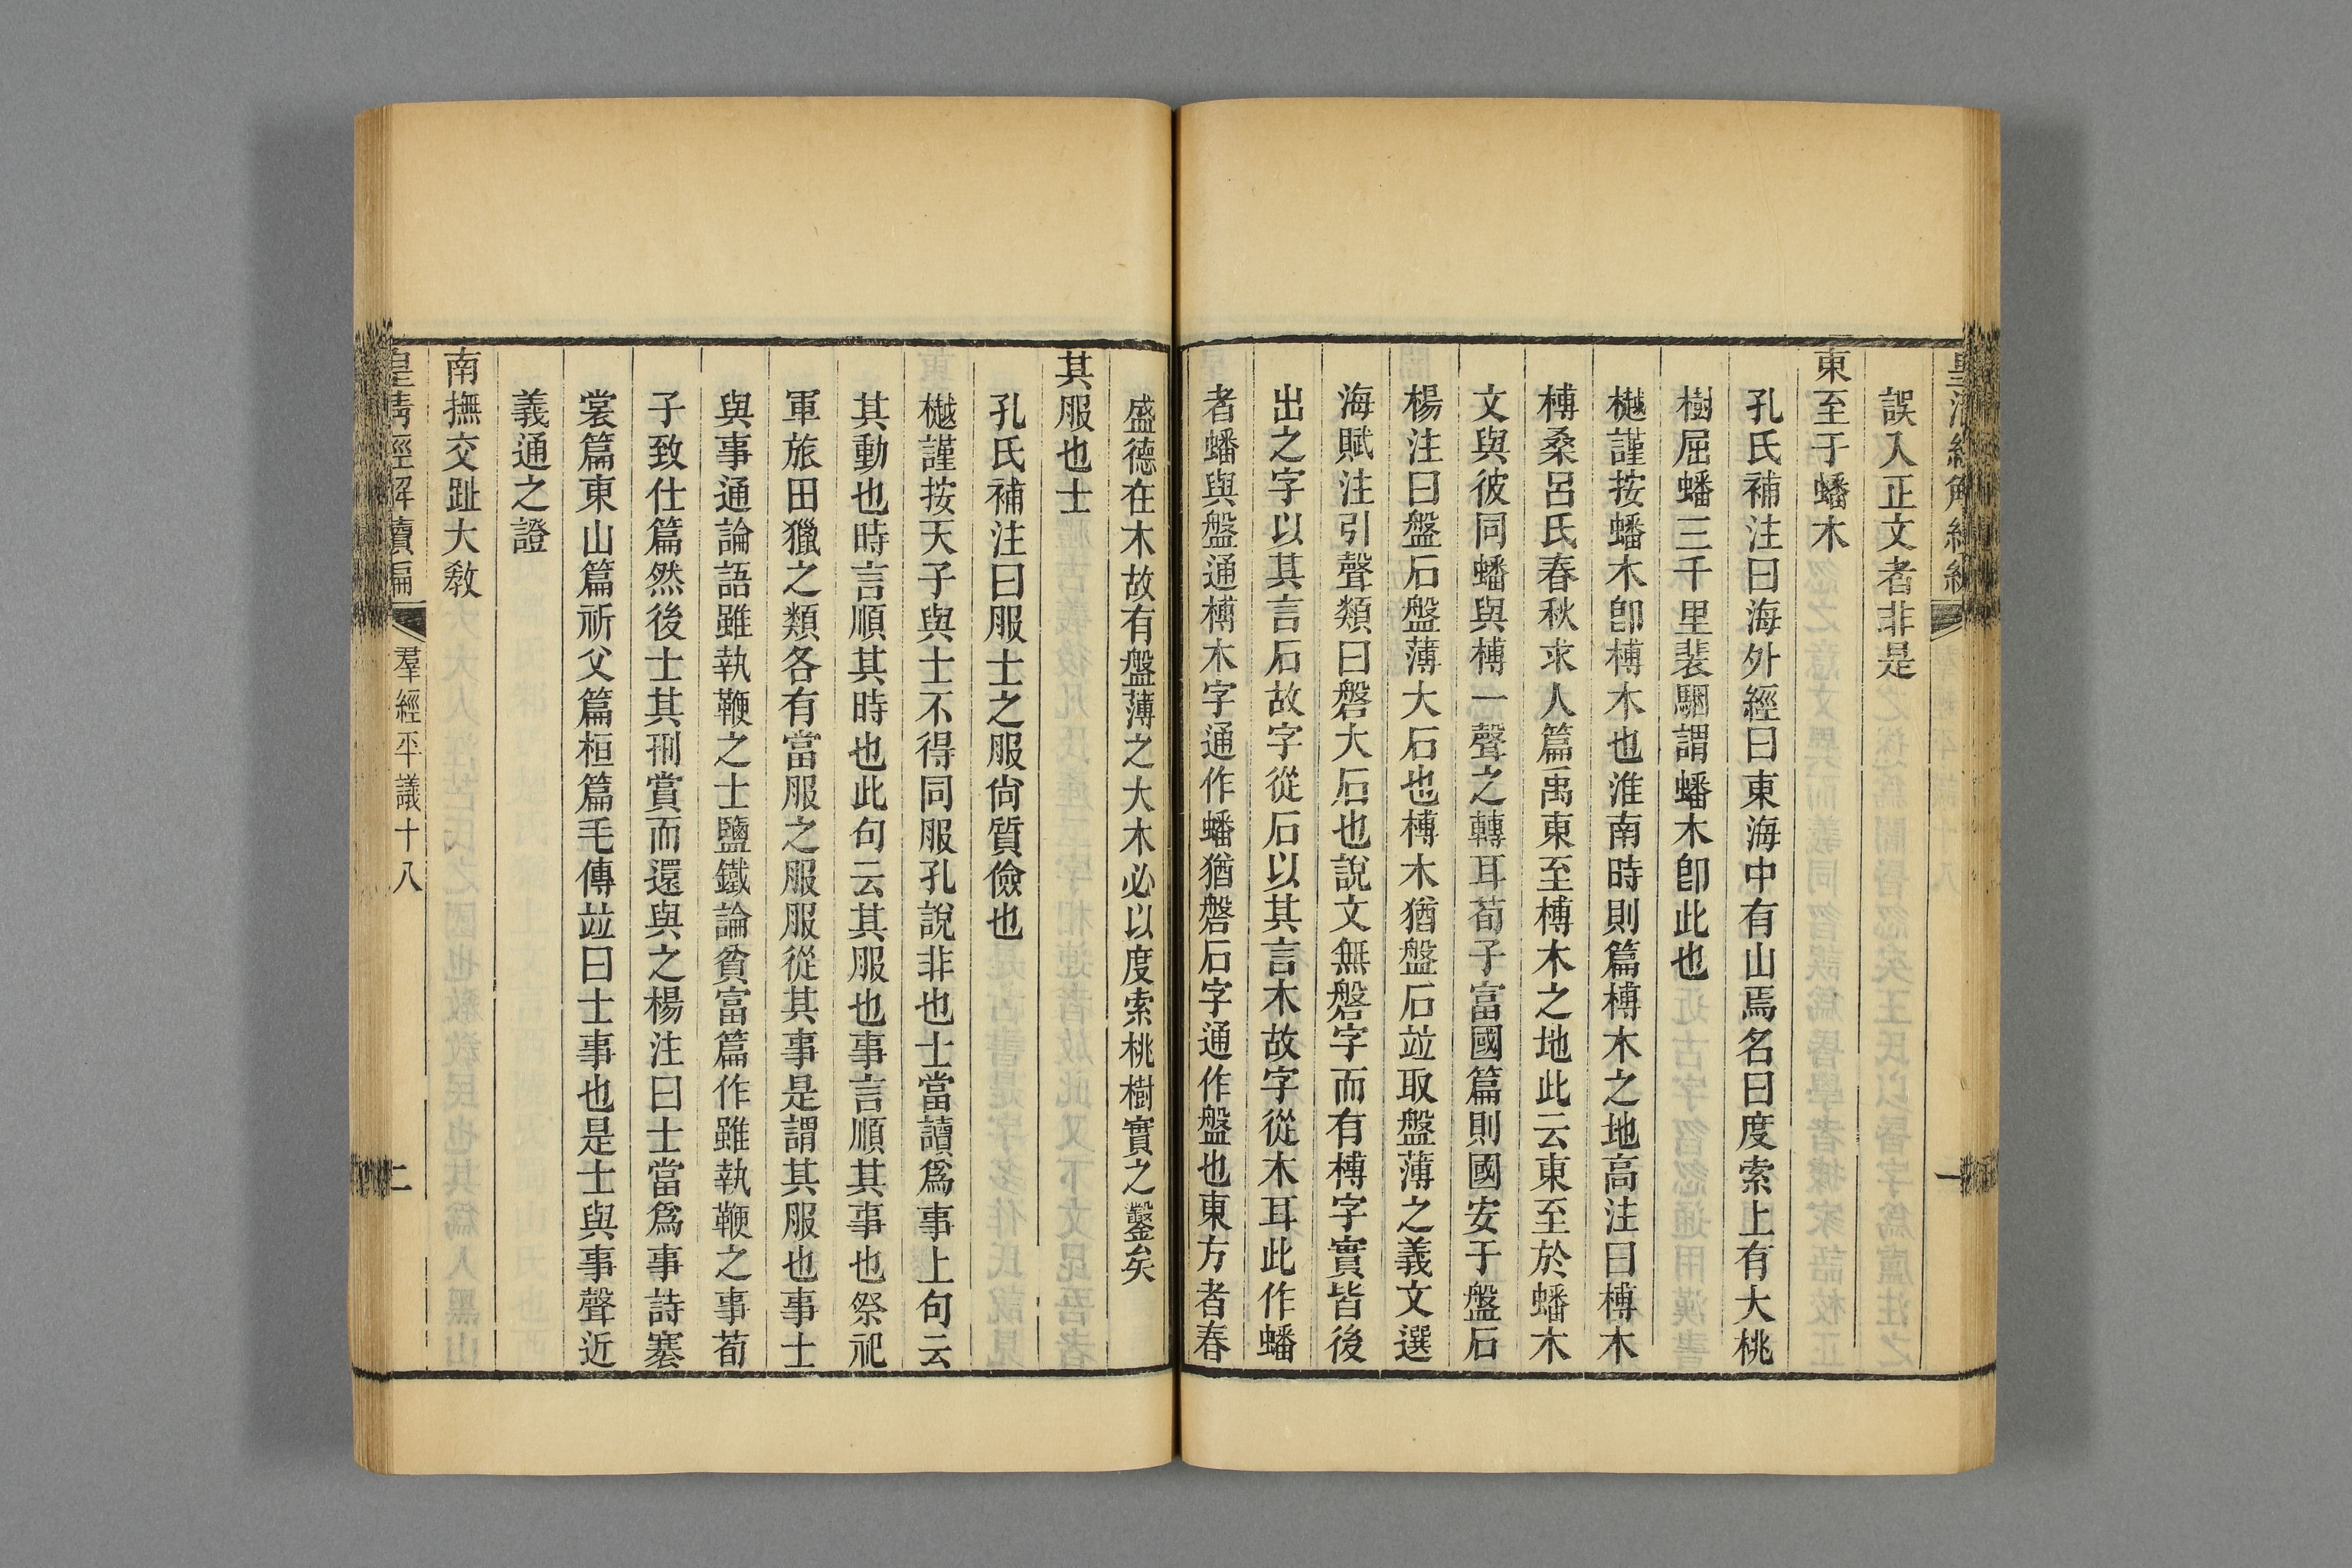 誤入正文者非是
東至于蟠木
孔氏補注曰海外經曰東海中有山焉名曰度索上有大桃
樹屈蟠三千里裴駰謂蟠木卽此也
樾謹按蟠木卽榑木也淮南時則篇榑木之地高注曰榑木
榑桑呂氏春秋求人篇禹東至榑木之地此云東至於蟠木
文與彼同蟠與榑一聲之轉耳荀子富國篇則國安于盤石
楊注曰盤石盤薄大石也榑木猶盤石竝取盤薄之義文選
海賦注引聲類曰磐大石也說文無磐字而有榑字實皆後
出之字以其言石故字從石以其言木故字從木耳此作蟠
者蟠與盤通榑木字通作蟠猶磐石字通作盤也東方者春
盛德在木故有盤薄之大木必以度索桃樹實之鑿矣
其服也士
孔氏補注曰服士之服尙質儉也
樾謹按天子與士不得同服孔說非也士當讀爲事上句云
其動也時言順其時也此句云其服也事言順其事也祭祀
軍旅田獵之類各有當服之服服從其事是謂其服也事士
與事通論語雖執鞭之士鹽鐵論貧富篇作雖執鞭之事荀
子致仕篇然後士其刑賞而還與之楊注曰士當爲事詩褰
裳篇東山篇祈父篇桓篇毛傳竝曰士事也是士與事聲近
義通之證
南撫交趾大敎
皇淸經解續編
羣經平議十八
二